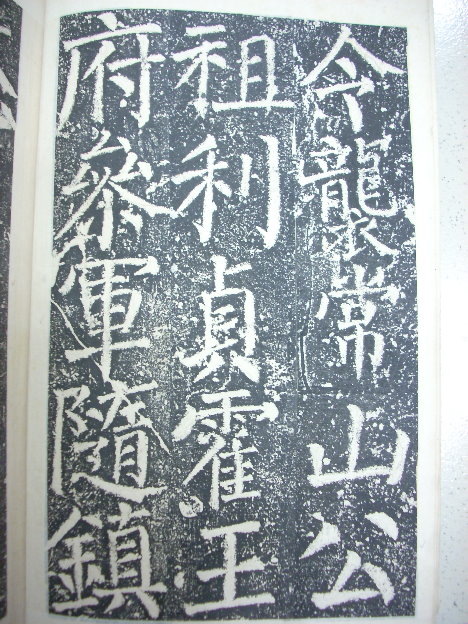 令襲常山公
祖利貞霍王
府叅軍隨鎮